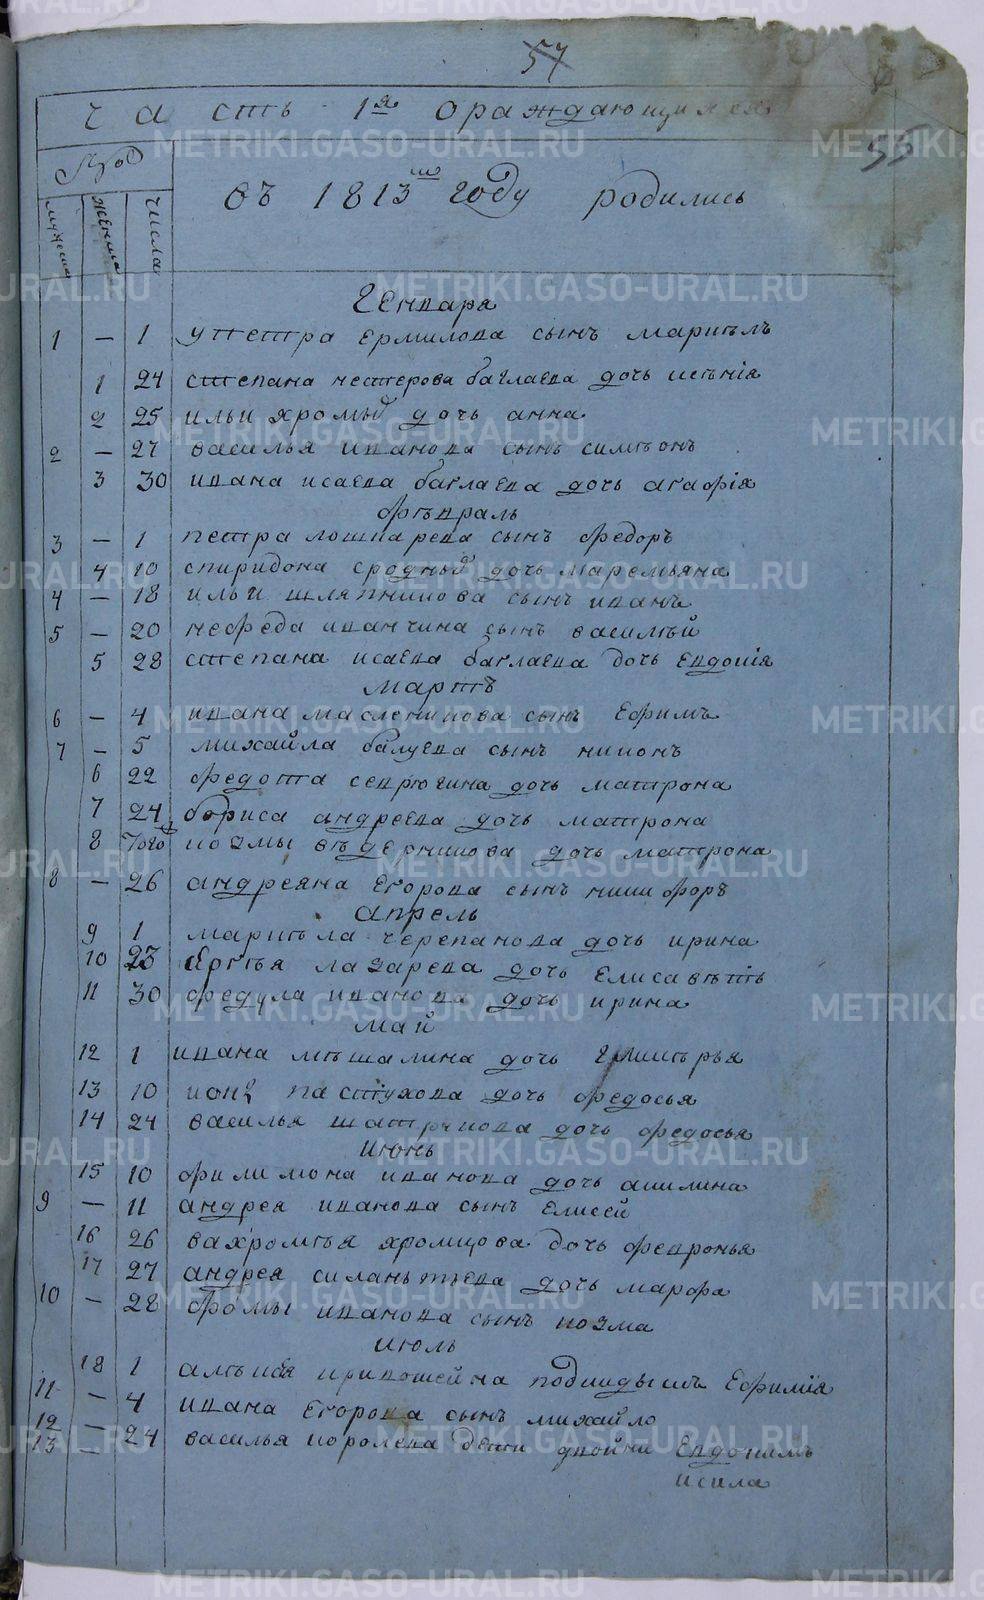 57
часть 1я ораждающихся
55
Мужеска
женска
числа
въ 1813м году родились
Генваря
1 — 1 У петра ермилова сынъ
1 24 степана нестерова баглаева дочь
2 25 ильи хромы дочь анна
2 — 27 василья иванова сынъ симеонъ
3 30 ивана исаева баглаева дочь агафія
февраль
3 — 1 петра лошкарева сынъ федоръ
4 10 спиридона дочь маремьяна
4 — 18 ильи шляпникова сынъ иванъ
5 — 20 нефеда иванчина сынъ василей
5 28 степана исаева баглаева дочь евдокія
мартъ
6 — 4 ивана масленикова сынъ ефимъ
7 — 5 михайла балуева сынъ никонъ
6 22 федота севрюгина дочь матрона
7 24 бориса андреева дочь матрона
8 Того козмы ведерникова дочь матрона
8 — 26 андреяна егорова сынъ никифоръ
апрель
9 1 черепанова дочь ирина
10 23 сергѣя лазарева дочь елисаветъ
11 30 федула иванова дочь ирина
май
12 1 ивана мѣшалкина дочь гликерья
13 10 ионы пастухова дочь федосья
14 24 василья дочь федосья
июнь
15 10 филимона иванова дочь акилина
9 — 11 андрея иванова сынъ елисей
16 26 вахромѣя хромцова дочь февронья
17 27 андрея силаньтьева дочь марфа
10 — 28 фомы иванова сынъ козма
июль
18 1 ефимія
11 — 4 ивана егорова сынъ михайло
12 — 24 василья королева дети двойни евдокимъ
13
исила
METRIKI.GASO-URAL.RU